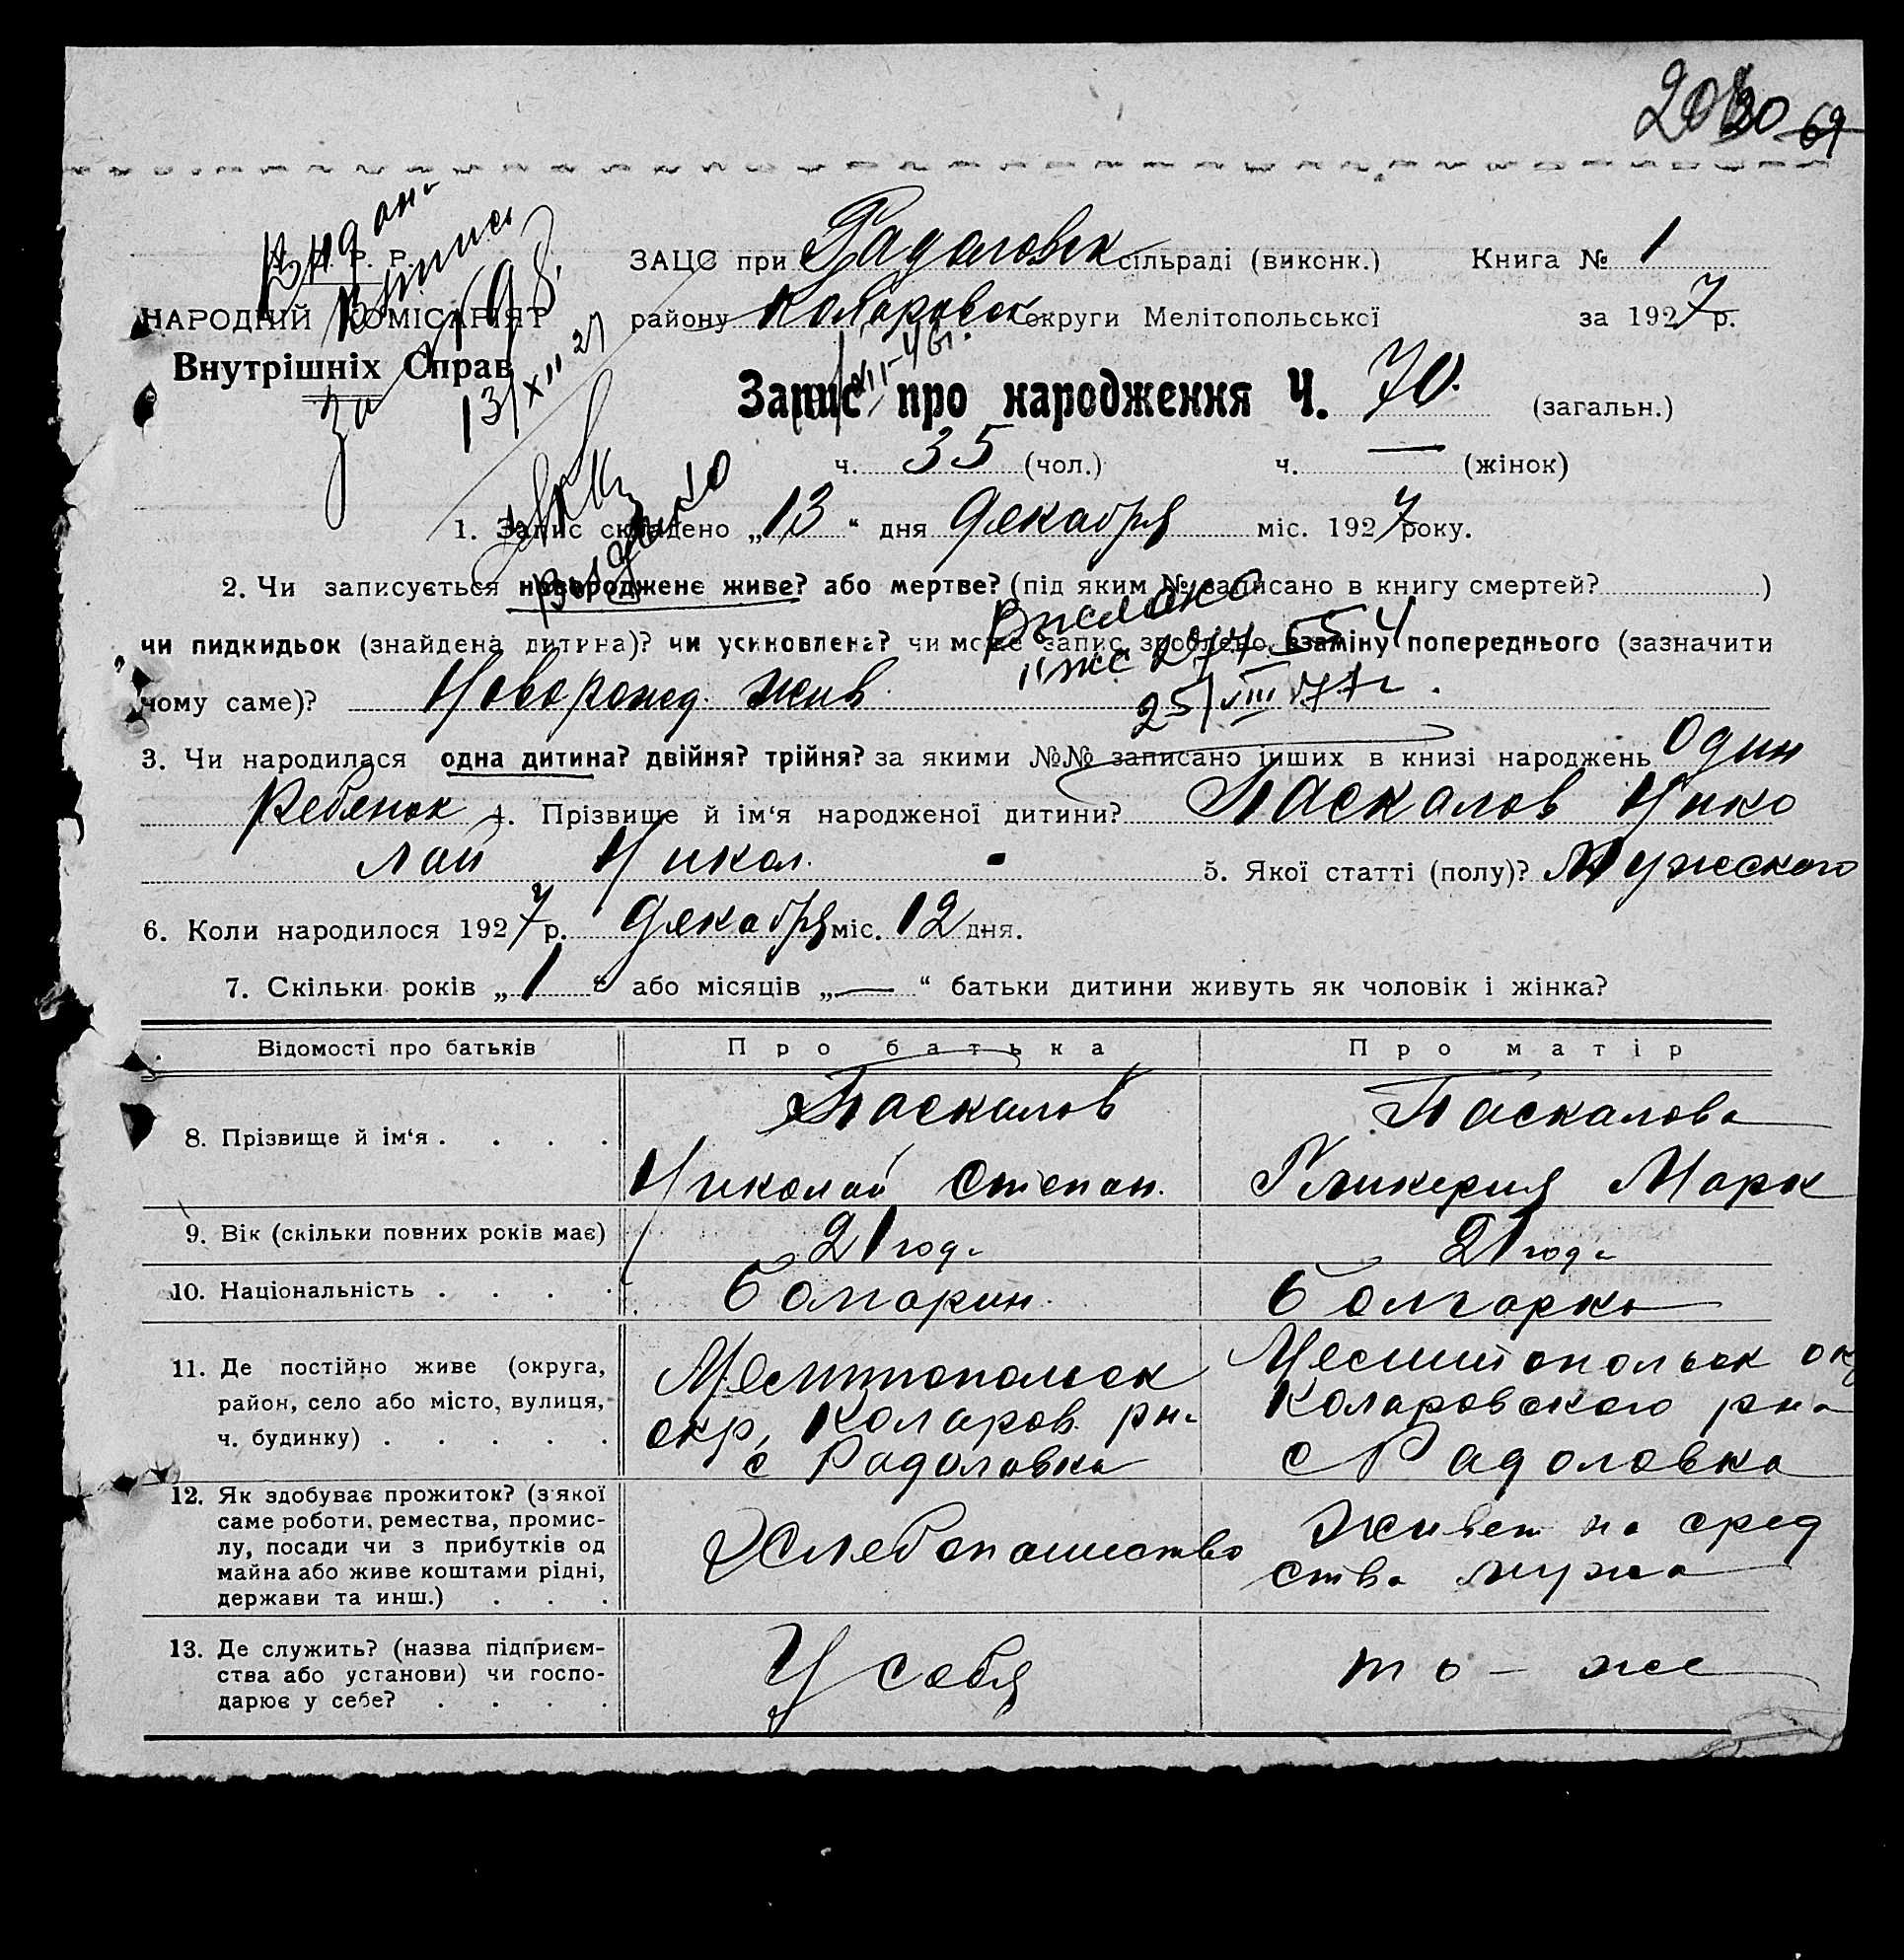 69
Видана
Випись
У. С. Р. Р.
ЗАЦС при Радоловск сільраді (виконк.) Книга № 1
НАРОДНИЙ КОМІСАРІЯТ
району Коларовск округи Мелітопольської за 1927 р.
Внутрішніх Справ
за № 98.
13/XII 27
Запис про народження Ч. 70. (загальн.)
ч. 35 (чол.) ч. — (жінок)
1. Запис складено „13“ дня декабря міс. 1927 року.
Выдано
2. Чи записується новороджене живе? або мертве? (під яким № записано в книгу смертей? )
чи пидкидьок (знайдена дитина)? чи усиновлена? чи може запис зроблено взаміну попереднього (зазначити
чому саме)? Новорожд. жив.
25/VIII
3. Чи народилася одна дитина? двійня? трійня? за якими №№ записано інших в книзі народжень Один
Ребенок 4. Прізвище й ім‘я народженої дитини? Паскалов Нико
лай Никол. 5. Якої статті (полу)? Мужского
6. Коли народилося 1927 р. декабря міс. 12 дня.
7. Скільки років „1“ або місяців „—“ батьки дитини живуть як чоловік і жінка?
Відомості про батьків Про батька Про матір
8. Прізвище й ім‘я . . . . Паскалов Паскалова
Николай Степан. Гликерия Марк
9. Вік (скільки повних років має) 21 год. 21 год.
10. Національність . . . . Болгарин. Болгарка
11. Де постійно живе (округа, Мелитопольск Мелитопольск ок
район, село або місто, вулиця, окр, Коларов. рна Коларовского рна
ч. будинку) . . . . . с Радоловка с Радоловка
12. Як здобуває прожиток? (з якої
саме роботи, ремества, промис- Живет на сред
лу, посади чи з прибутків од Хлебопашество
майна або живе коштами рідні, ства мужа
держави та инш.) . . .
13. Де служить? (назва підприєм-
ства або установи) чи госпо- У себя то-же
дарює у себе? . . . .